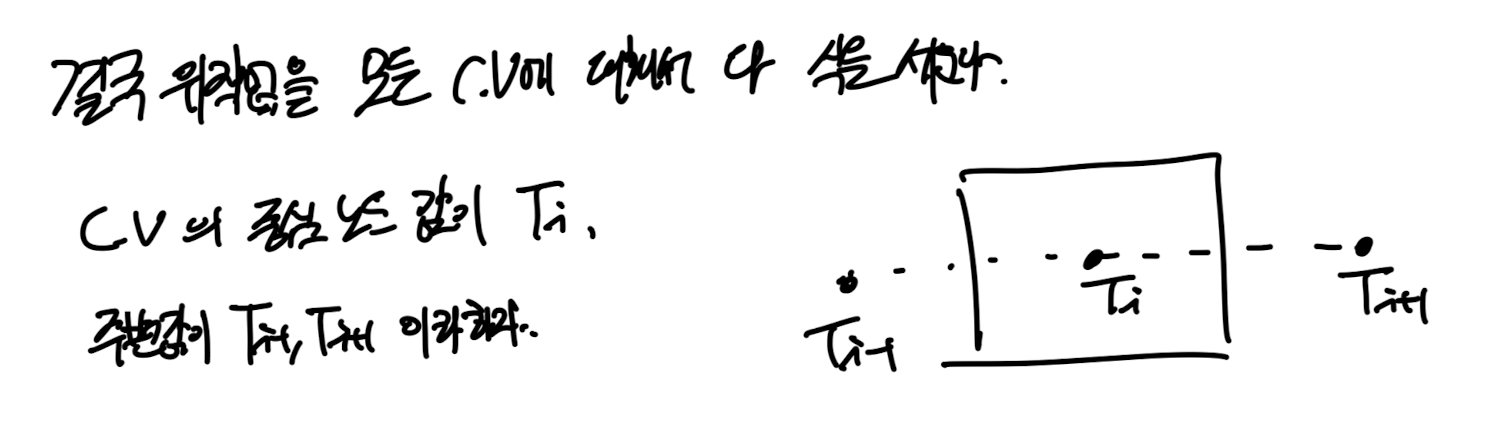 결국 위작업을 모든 C.V에 대해서 다 식을 세운다.
C.V의 중심 노드 값이 Ti,
주변값이 Ti-1, Ti+1 이라하자.
Ti-1
Ti
Ti+1